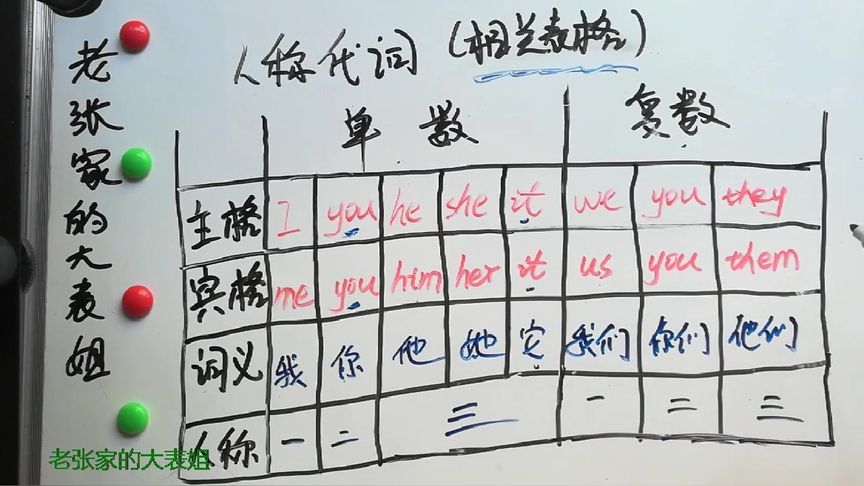 老张家的大表姐
人称代词（相关表格）
单数 复数
主格 I you he she it we you they
宾格 me you him her it us you them
词义 我 你 他 她 它 我们 你们 他们
人称 一 二 三 一 二 三
老张家的大表姐